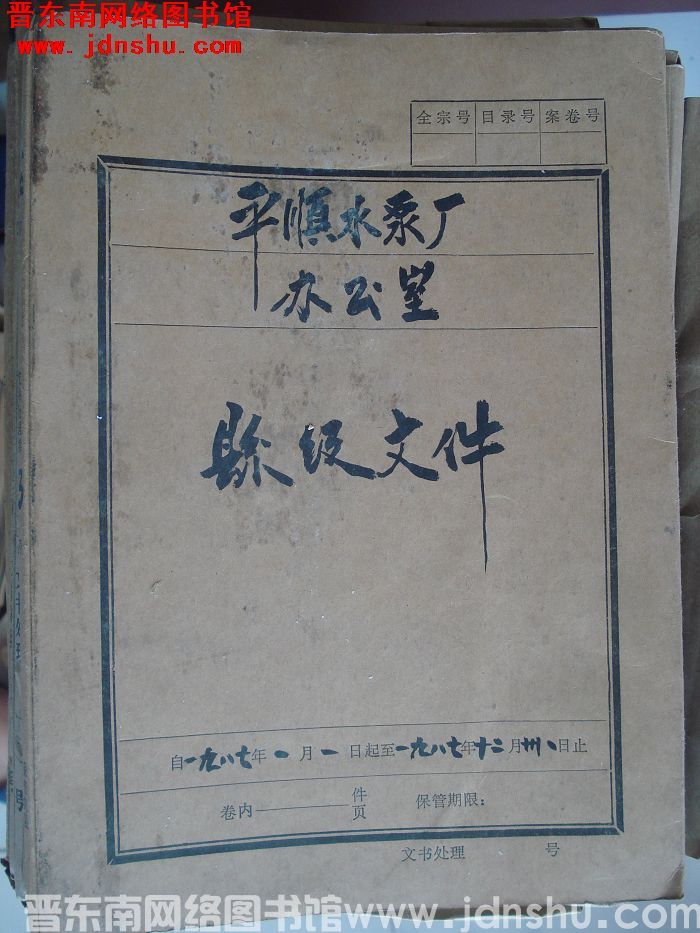 晋东南网络图书馆
www.jdnshu.com
全宗号 目录号 案卷号
平順水泵厂
办公室
縣级文件
自一九八七年一月一日起至一九八七年十二月卅一日止
卷内 件
页
保管期限：
文书处理 号
3
号
晋东南网络图书馆 www.jdnshu.com